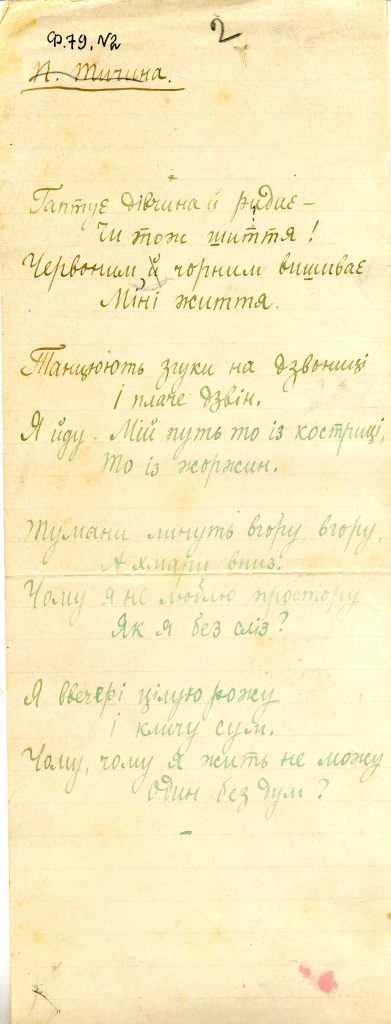 2
Ф.79, №2
П. Тичина.
Гаптує дівчина й ридає –
Чи тож шиття!
Червоним й чорним вишиває
Міні життя.
Танцюють згуки на дзвониці
І плаче дзвін.
Я йду. Мій путь то із костриці,
То із жоржин.
Тумани линуть вгору, вгору,
А хмари вниз.
Чому я не люблю простору
Як я без сліз?
Я ввечері цілую рожу
І кличу сум.
Чому, чому я жить не можу
Один без дум?
–